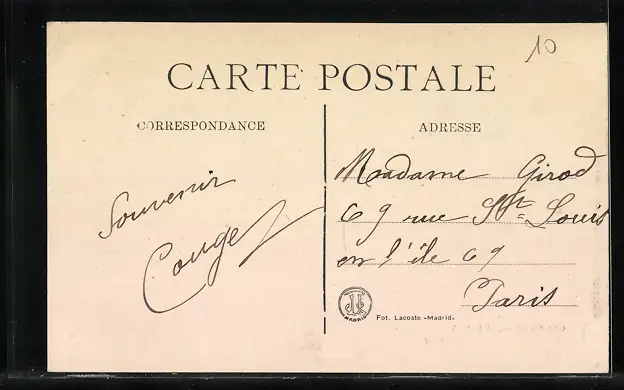 10
CARTE POSTALE
CORRESPONDANCE
ADRESSE
Souvenir
Madame Girod
69 rue St Louis
en l'île 69
Paris
MADRID
Fot. Lacoste.-Madrid.